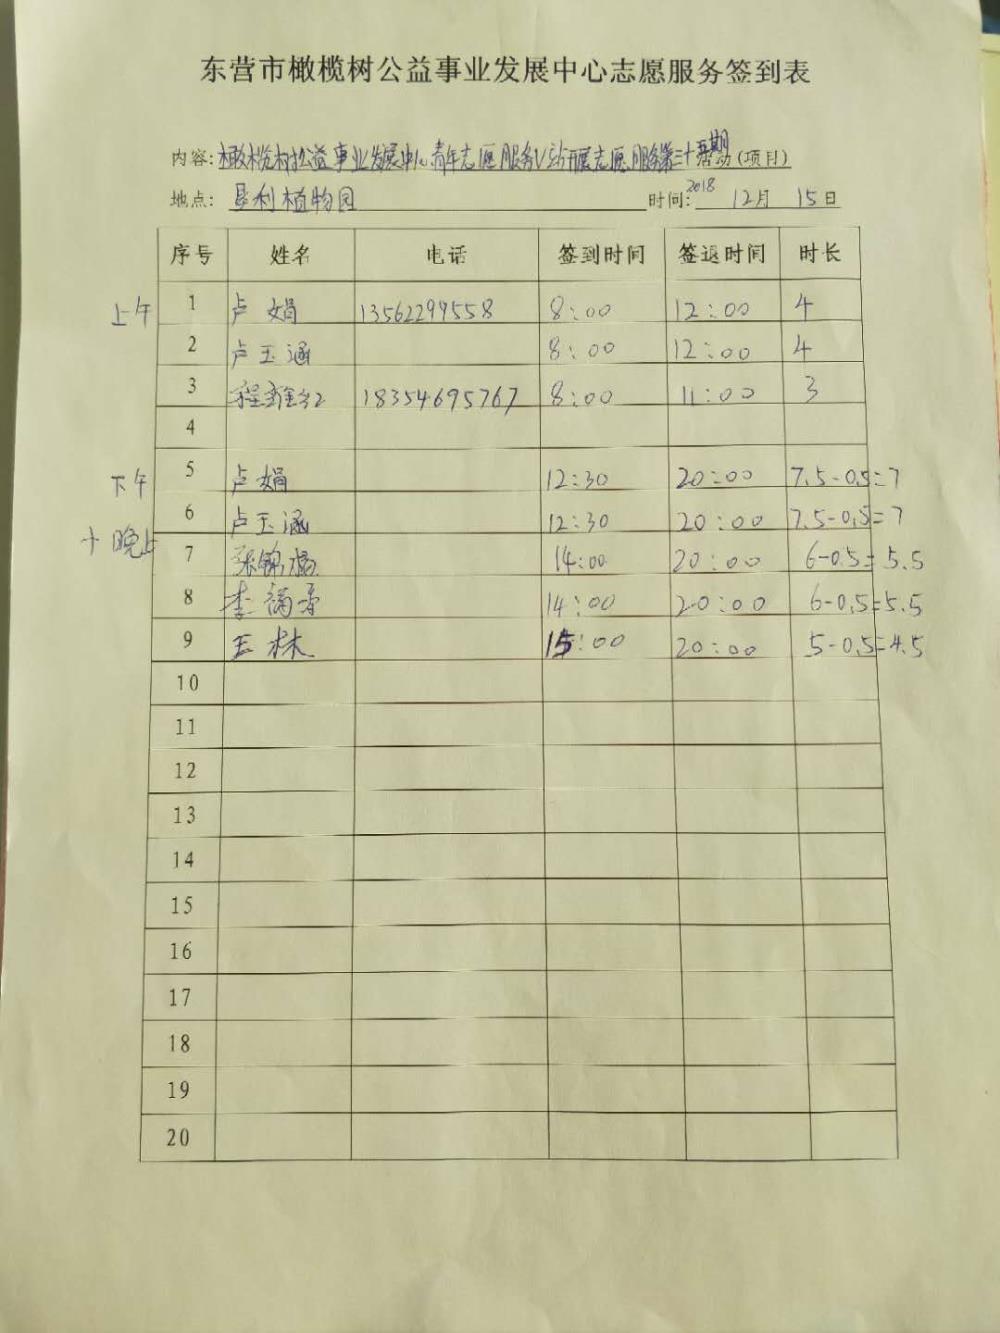 东营市橄榄树公益事业发展中心志愿服务签到表
内容: 橄榄树公益事业发展中心青年志愿服务V站开展志愿服务第三十五期活动(项目)
地点: 垦利植物园 时间: 2018 12月 15日
序号 姓名 电话 签到时间 签退时间 时长
上午 1 卢娟 13562299558 8:00 12:00 4
2 卢玉涵 8:00 12:00 4
3 程雅红 18354695767 8:00 11:00 3
4
下午 5 卢娟 12:30 20:00 7.5-0.5=7
6 卢玉涵 12:30 20:00 7.5-0.5=7
+晚上 7 张锦 14:00 20:00 6-0.5=5.5
8 李 14:00 20:00 6-0.5=5.5
9 王林 15:00 20:00 5-0.5=4.5
10
11
12
13
14
15
16
17
18
19
20